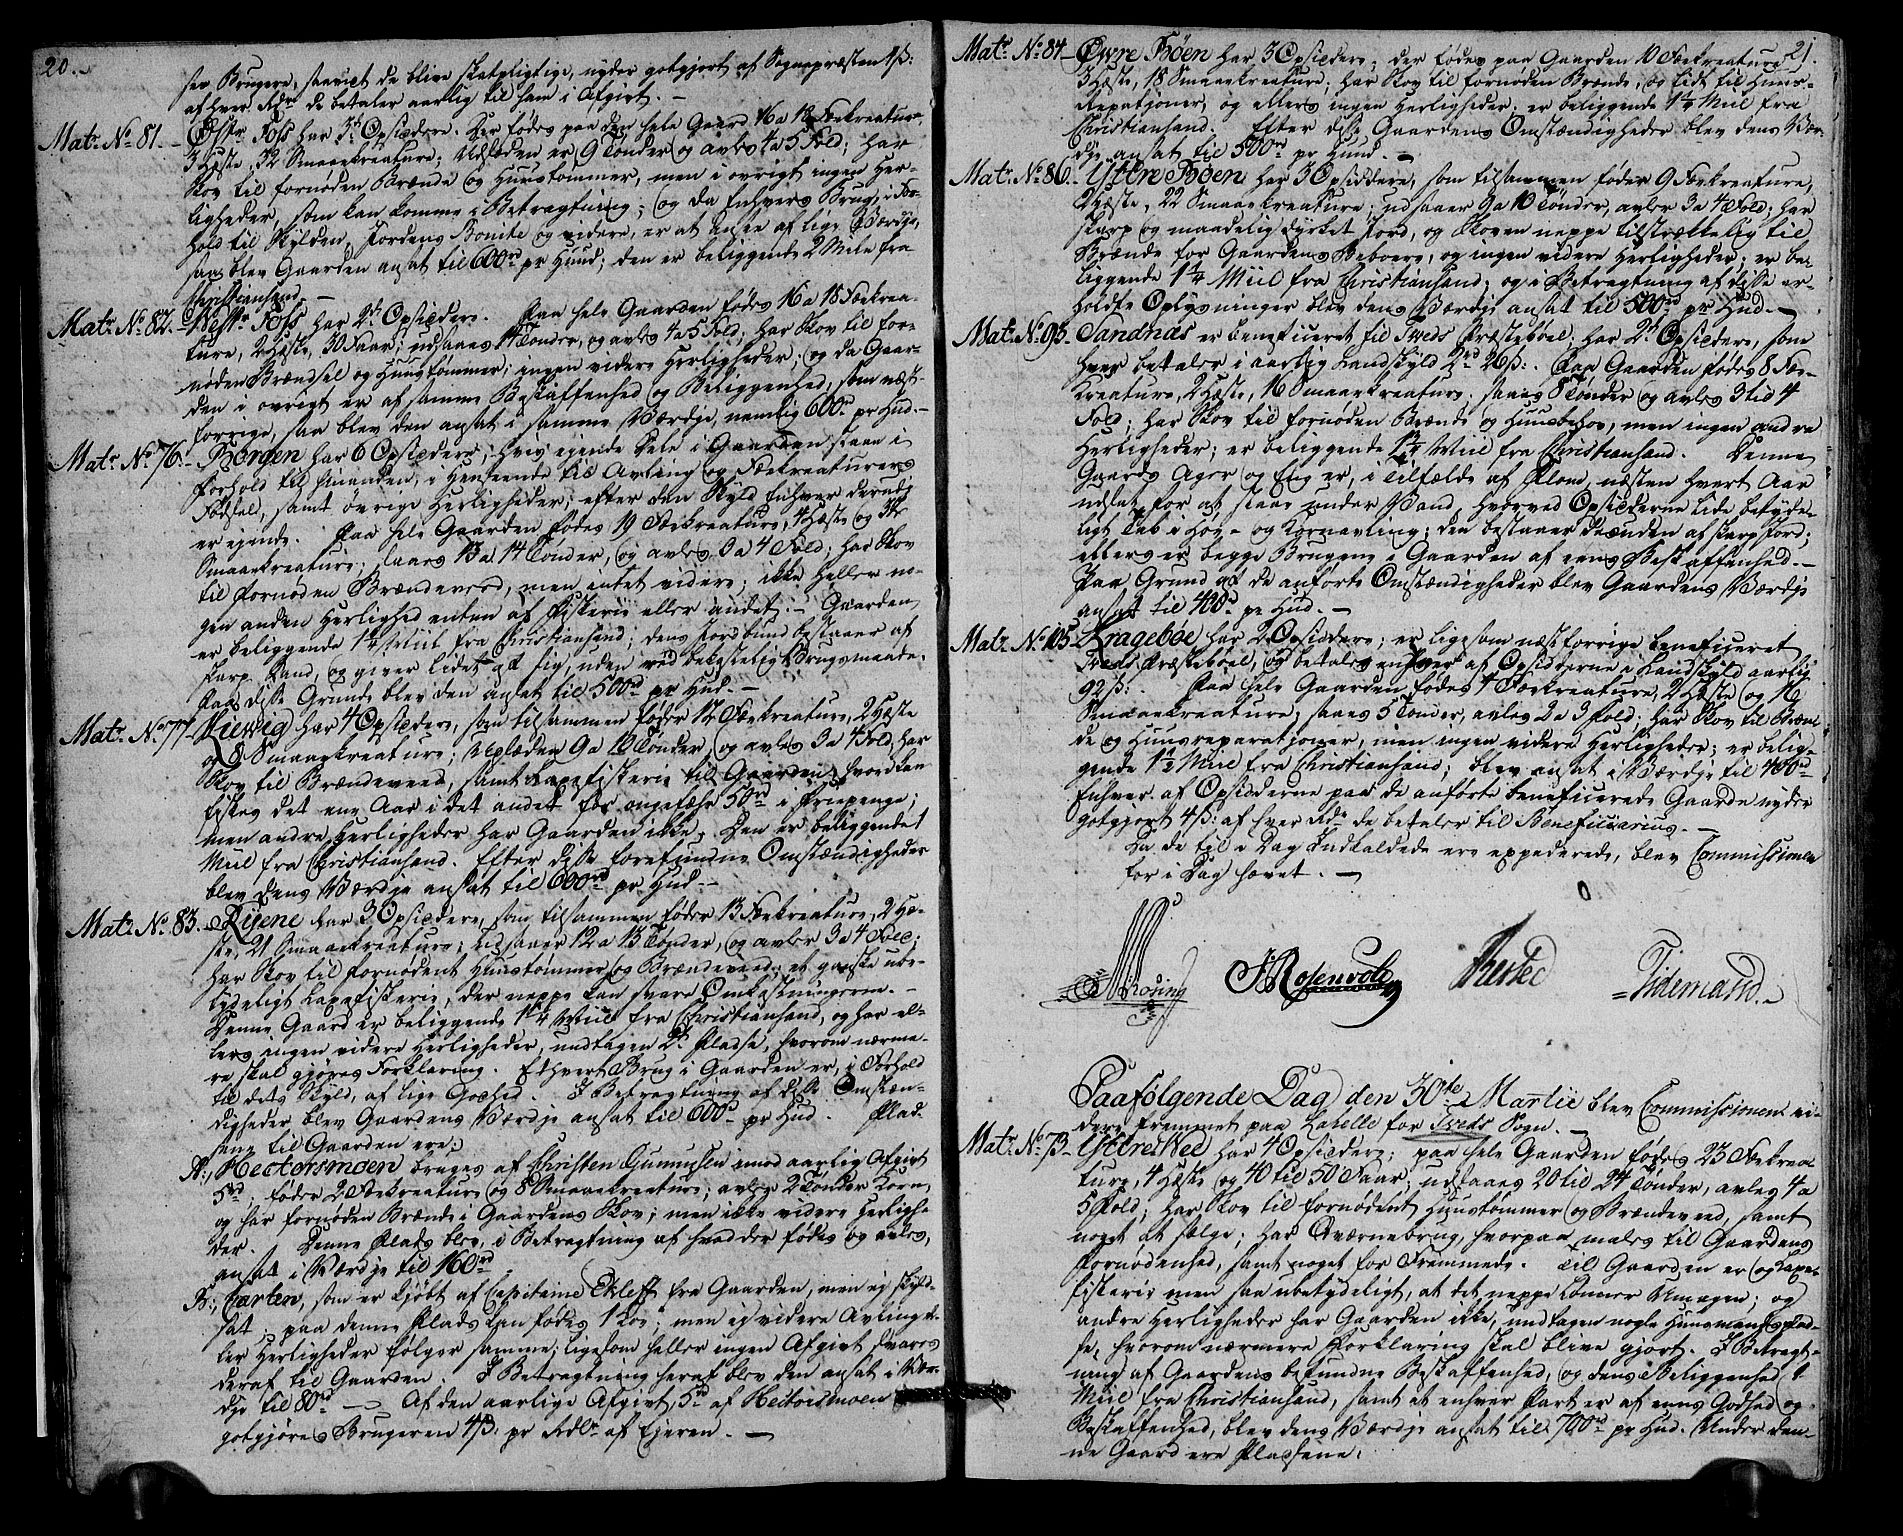 20.
sen Brugere, saavidt de blive skatpligtige, nyder gotgjort af Sognepræsten 4ß:
af hver Rdr de betaler aarlig til ham i Afgivt. —
Mat: No 81. — Østr. Foss har 3de Opsiddere. Der fødes paa den hele Gaard 16 a 18 Fækreature
3 Heste, 32 Smaaekreature; Udsæden er 9 Tønder og avles 4 a 5 Fold; har
Skov til fornøden Brænde og Huustømmer, men i øvrigt ingen Her-
ligheder, som kan komme i Betragtning; og da Enhvers Brug, i For-
hold til Skylden, Jordens Bonite og videre, er at ansee af lige Værdje,
saa blev Gaarden ansat til 600rd pr Huud; den er beliggende 2 Mile fra
Christiansand. —
Mat: No 82. — Vestr. Foss har 2de Opsiddere. Paa hele Gaarden fødes 16 a 18 Fækrea-
ture, 2 Heste, 30 Faar; udsaaes Tønder, og avles 4 a 5 Fold; har Skov til for-
nøden Brændsel og Huustømmer; ingen videre Herligheder; og da Gaar-
den i øvrigt er af samme Beskaffenhed og Beliggenhed, som næst-
forrige, saa blev den ansat i samme Værdje, nemlig 600rd pr Hud. —
Mat: No 76. — Bergen har 6 Opsiddere, hvis ejende Dele i Gaarden staae i
Forhold til hinanden, i Henseende til Avling og Fækreaturers
Fødsel, samt øvrige Herligheder, efter den Skyld Enhver deraf
er ejende. Paa hele Gaarden fødes 19 Fækreature, 4 Heste og
Smaaekreature; saaes 13 a 14 Tønder, og avles 3 a 4 Fold; har Skov
til fornøden Brændeveed, men intet videre; ikke heller no-
gen anden Herlighed enten af Fiskerie eller andet. — Gaarden
er beliggende 1¼ Miil fra Christiansand; dens Jordbund bestaaer af
skarp Sand, og giver lidet af sig, uden ved bekostelig Brugsmaade.
Paa disse Grunde blev den ansat til 500rd pr Hud. —
Mat: No 77 — Kiewig har 4 Opsiddere, som tilsammen føder 12 Fækreature, 2 Heste
og 8 Smaaekreature; Udsæden 9 a 10 Tønder, og avles 3 a 4 Fold, har
Skov til Brændeveed, samt Laxefiskerie til Gaarden, hvordan
fiskes det ene Aar i det andet for ongefæhr 50rd i Friepenge;
men andre Herligheder har Gaarden ikke. Den er beliggende 1
Miil fra Christiansand. Efter disse forefundne Omstændigheder
blev dens Værdje ansat til 600rd pr Hud. —
Mat: No 83. — Ryene har 3 Opsiddere, som tilsammen føder 13 Fækreature, 2 He-
ste, 21 Smaaekreature; udsaaer 12 a 13 Tønder, og avler 3 a 4 Fold;
har Skov til fornødent Huustømmer og Brændeveed; et ganske ube-
tydeligt Laxefiskerie, der neppe kan svare Omkostningerne. —
Denne Gaard er beliggende 1¼ Miil fra Christiansand, og har el-
lers ingen videre Herligheder, undtagen 2de Pladse, hvorom nærme-
re skal gjøres Forklaring. Ethvert Brug i Gaarden er, i Forhold
til dets Skyld, af lige Godhed. I Betragtning af disse Omstæn-
digheder blev Gaardens Værdje ansat til 600rd pr Hud. Plad-
sene til Gaarden ere:
A:, Hectorsmoen bruges af Christen Gunnusen imod aarlig Afgivt
5rd; føder 2 Fækreature og 8 Smaaekreature; avler 2 Tønder Korn,
og har fornøden Brænde i Gaardens Skov; men ikke videre Herlighe-
der. Denne Plads blev, i Betragtning af hvad der fødes og avles,
ansat i Værdje til 160rd
B:, Carlen, som er kjøbt af Capitaine Ekleff fra Gaarden, men ej skyld-
sat; paa denne Plads kan fødes 1 Koe; men ej videre Avling el-
ler Herligheder følger samme; ligesom heller ingen Afgivt svares
deraf til Gaarden. I Betragtning heraf blev den ansat i Vær-
dje til 80rd — Af den aarlige Afgivt 5rd af Hectorsmoen
gotgjøres Brugeren 4ß pr Rdlr af Ejeren. —
21.
Mat: No 84 — Øvre Bøen har 3 Opsiddere; der fødes paa Gaarden 10 Fækreature
3 Heste, 18 Smaaekreature; har Skov til fornøden Brænde, og lidt til Huus-
Repationer, og ellers ingen Herligheder; er beliggende 1¼ Miil fra
Christiansand. Efter disse Gaardens Omstændigheder blev dens Vær-
dje ansat til 500rd pr Huud. —
Mat: No 86. — Yttre Bøen har 3 Opsiddere, som tilsammen føder 9 Fækreature,
Heste, 22 Smaaekreature; udsaaer 9 a 10 Tønder, avler 3 a 4 Fold; har
skarp og maadelig dyrket Jord, og Skoven neppe tilstrækkelig til
Brænde for Gaardens Beboere, og ingen videre Herligheder; er be-
liggende 1¼ Miil fra Christiansand; og i Betragtning af disse er-
holdte Oplysninger blev dens Værdje ansat til 500rd pr Hud. —
Mat: No 95 — Sandnæs er beneficeret til Tveds Præstebøel; har 2de Opsiddere, som
hver betaler i aarlig Landskyld 2rd 26ß:. Paa Gaarden fødes 8 Fæ-
kreature, 2 Heste, 16 Smaaekreature, saaes 8 Tønder og avles 3 til 4
Fold; har Skov til fornøden Brænde og Huusbehov, men ingen andre
Herligheder; er beliggende 1¼ Miil fra Christiansand. Denne
Gaards Ager og Eng er, i Tilfælde af Flom, næsten hvert Aar
udsat for at staae under Vand, hvorved Opsidderne lide betyde-
ligt Tab i Høe- og Kornavling; den bestaaer desuden af skarp Jord;
ellers er begge Brugene i Gaarden af eens Beskaffenhed. —
Paa Grund af de anførte Omstændigheder blev Gaardens Værdje
ansat til 400rd pr Hud. —
Mat: No 105 — Kragebøe har 2 Opsiddere; er ligesom næstforrige beneficeret
Tveds Præstebøel, og betales enhver af Opsidderne i Landskyld aarlig
92ß:. Paa hele Gaarden fødes 4 Fækreature, 2 Heste og 16
Smaaekreature; saaes 5 Tønder, avles 2 a 3 Fold; har Skov til Bræn-
de og Huusreparationer, men ingen videre Herligheder; er belig-
gende 1½ Miil fra Christiansand; blev ansat i Værdje til 400rd
Enhver af Opsidderne paa de anførte beneficerede Gaarde nyder
gotgjort 4ß: af hver Rdr de betaler til Beneficiarius. —
Da de til i Dag Indkaldede ere expederede, blev Commissionen
for i Dag hævet. —
JRosenvold
Tidemand.
Paafølgende Dag den 30te Martii blev Commissionen vi-
dere fremmet paa Labelle for Tveds Sogn. —
Mat: No 73 — Yttre Wee har 4 Opsiddere; paa hele Gaarden fødes 23 Fækrea-
ture, 4 Heste og 40 til 50 Faar; udsaaes 20 til 24 Tønder, avles 4 a
5 Fold; har Skov til fornødent Huustømmer og Brændeveed, samt
noget at sælge; har Qværnebrug, hvorpaa males til Gaardens
Fornødenhed, samt noget for Fremmede. Til Gaarden er og Laxe-
fiskerie men saa ubetydeligt, at det neppe lønner Umagen; og
andre Herligheder har Gaarden ikke, undtagen nogle Huusmandsplad-
se, hvorom nærmere Forklaring skal blive gjort. I Betragt-
ning af Gaardens befundne Beskaffenhed, og dens Beliggenhed 1
Miil fra Christiansand, samt at enhver Part er af eens Godhed og
Beskaffenhed, blev dens Værdje ansat til 700rd pr Hud. Under den-
ne Gaard ere Pladsene: